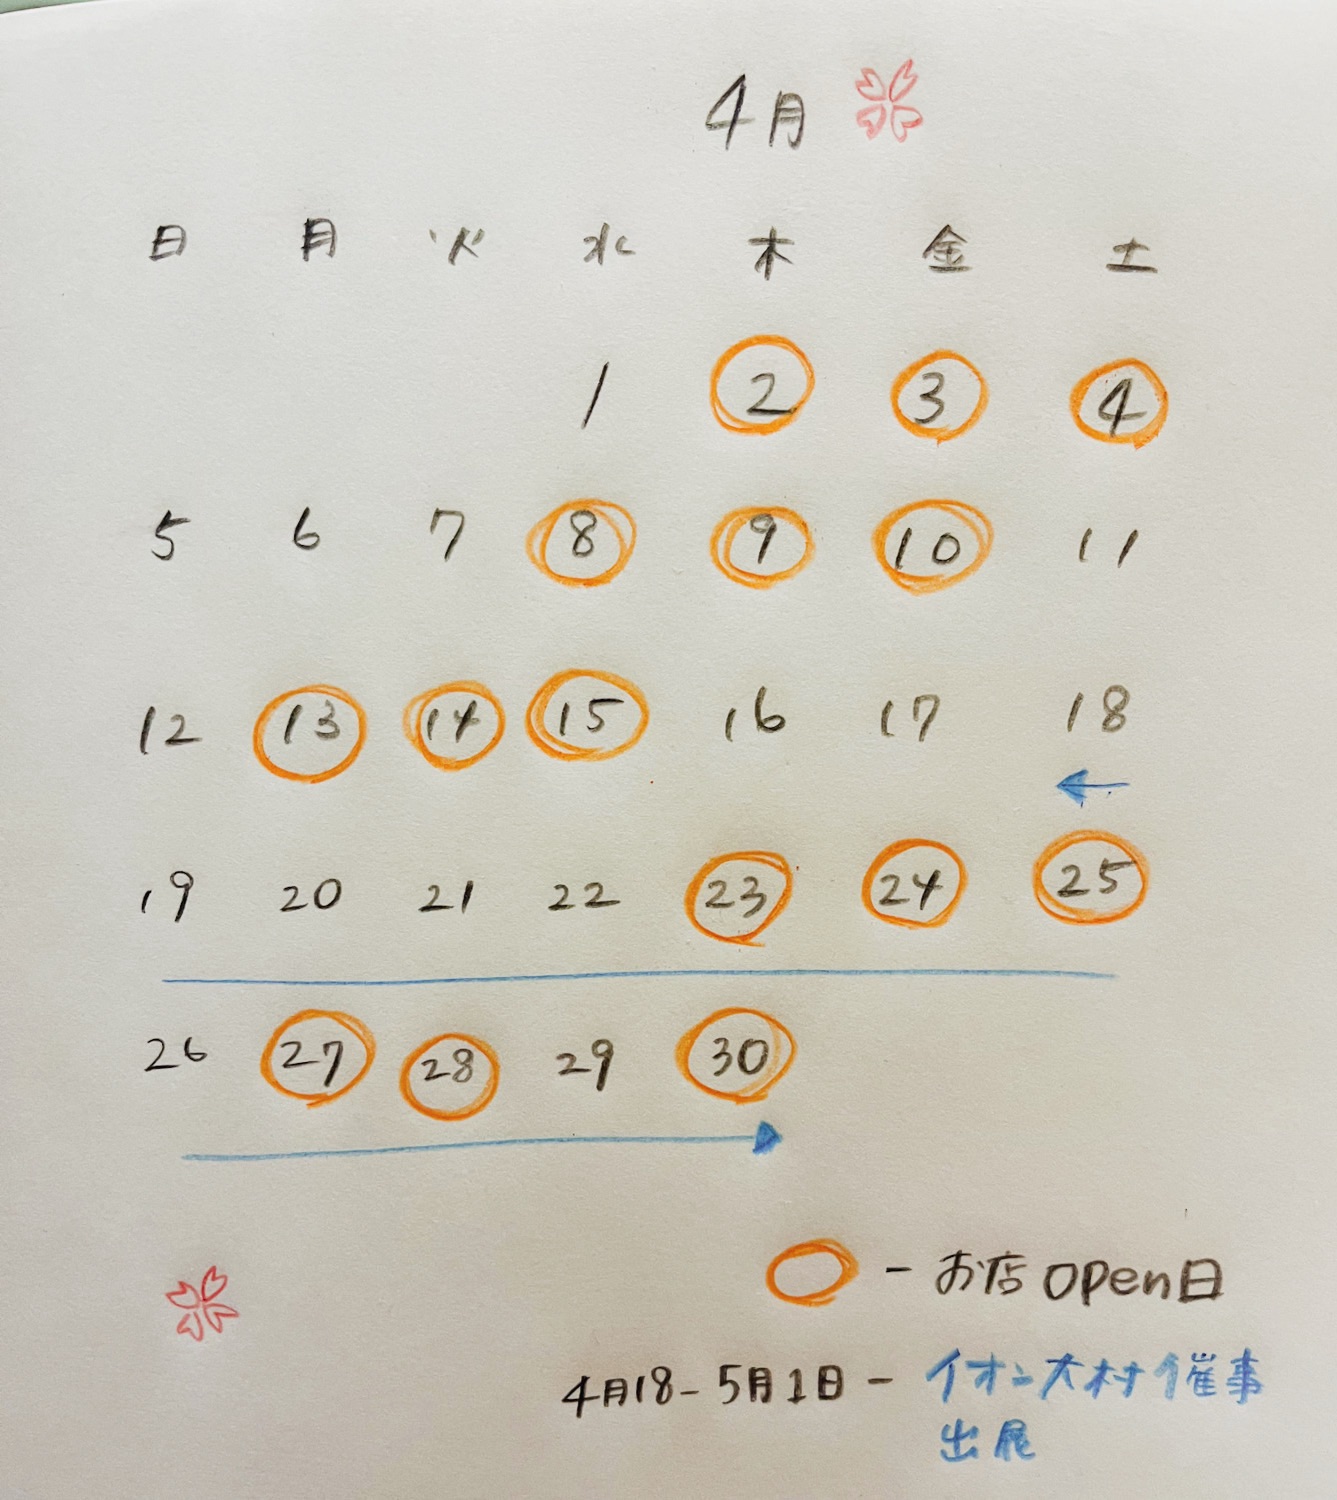 4月
日 月 火 水 木 金 土
1 2 3 4
5 6 7 8 9 10 11
12 13 14 15 16 17 18
19 20 21 22 23 24 25
26 27 28 29 30
- お店 open日
4月18-5月1日 - イオン大村催事
出展